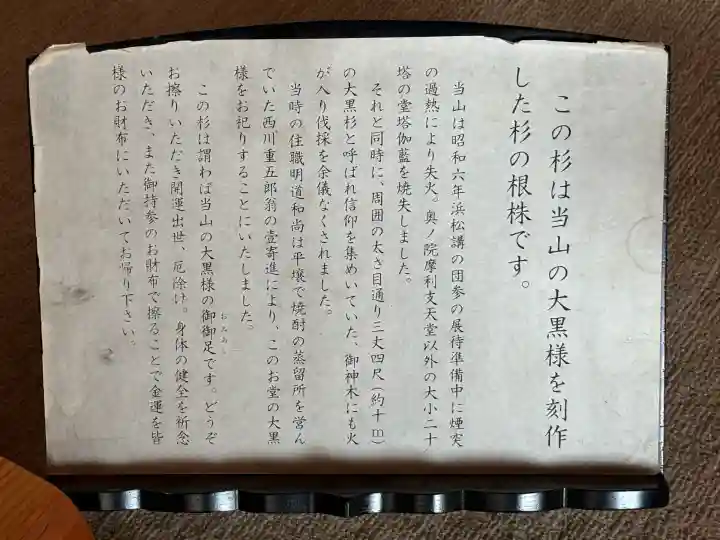 この杉は当山の大黒様を刻作
した杉の根株です。
当山は昭和六年浜松講の団参の展待準備中に煙突
の過熱により失火。奥ノ院摩利支天堂以外の大小二十
塔の堂塔伽藍を焼失しました。
それと同時に、周囲の太さ目通り三丈四尺(約十m)
の大黒杉と呼ばれ信仰を集めいていた、御神木にも火
が入り伐採を余儀なくされました。
当時の住職明道和尚は平壌で焼酎の蒸留所を営ん
でいた西川重五郎翁の壹寄進により、このお堂の大黒
様をお祀りすることにいたしました。
この杉は謂わば当山の大黒様の御御足です。どうぞ
おみあし
お擦りいただき開運出世、厄除け。身体の健全を祈念
いただき、また御持参のお財布で擦ることで金運を皆
様のお財布にいただいてお帰り下さい。